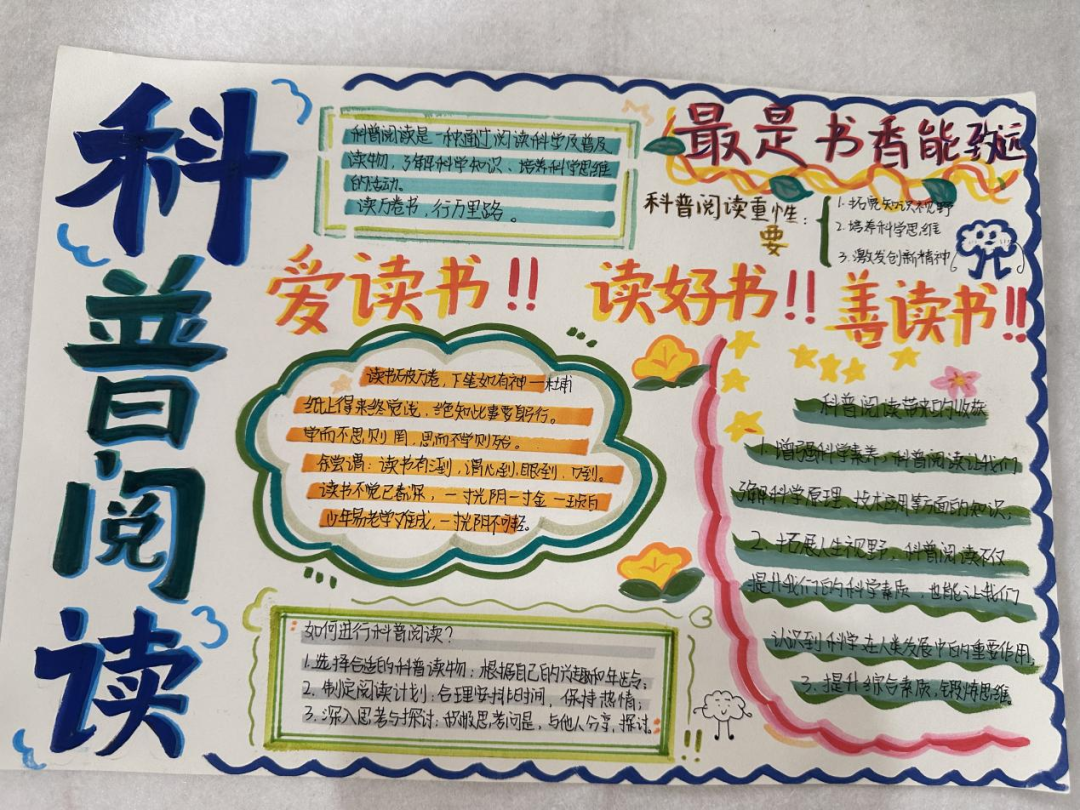 科普阅读
科普阅读是一种通过阅读科学及普及
读物，了解科学知识、培养科学思维
的活动。
读万卷书，行万里路。
最是书香能致远
科普阅读重要性：
1. 拓宽知识视野
2. 培养科学思维
3. 激发创新精神
爱读书!! 读好书!! 善读书!!
读书破万卷，下笔如有神—杜甫
纸上得来终觉浅，绝知此事要躬行。
学而不思则罔，思而不学则殆。
余尝谓：读书有三到，谓心到，眼到，口到。
读书不觉已春深，一寸光阴一寸金—王贞白
少年易老学难成，一寸光阴不可轻。
如何进行科普阅读？
1. 选择合适的科普读物：根据自己的兴趣和年龄；
2. 制定阅读计划：合理安排时间，保持热情；
3. 深入思考与探讨：积极思考问题，与他人分享，探讨。
科普阅读带来的收获
1. 增强科学素养，科普阅读让我们
了解科学原理、技术应用等方面的知识；
2. 拓展人生视野，科普阅读不仅
提升我们的科学素质，也能让我们
认识到科学在人类发展中的重要作用；
3. 提升综合素质，锻炼思维。